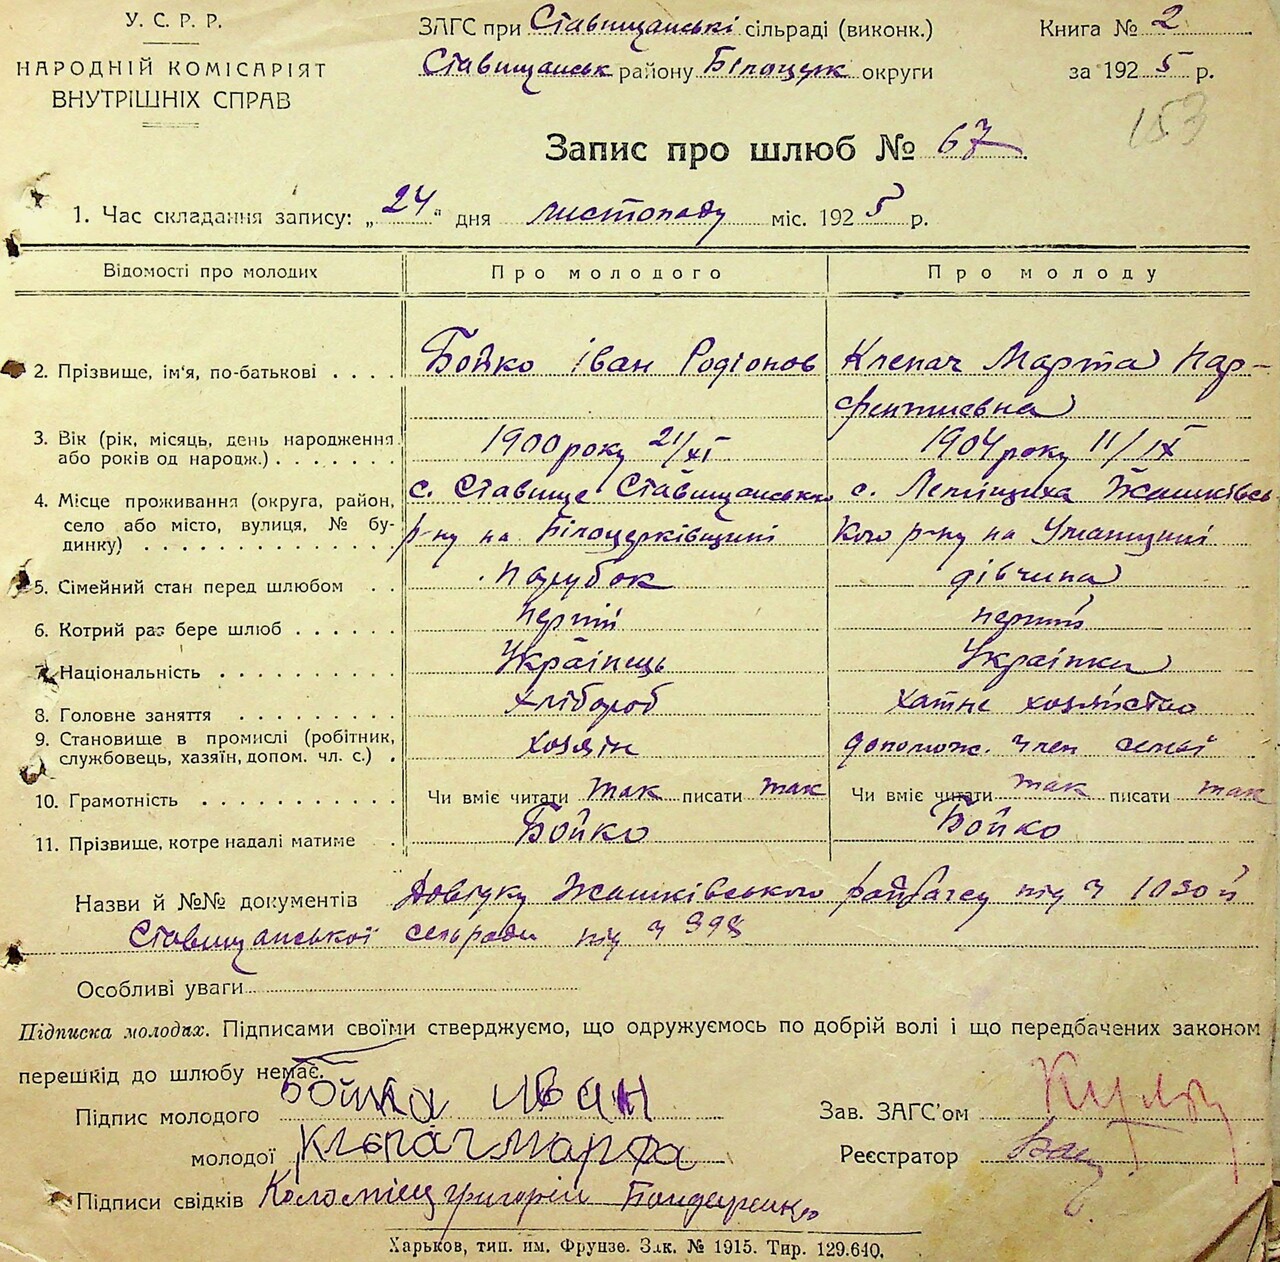 У. С. Р. Р.
НАРОДНІЙ КОМІСАРІЯТ
ВНУТРІШНІХ СПРАВ
ЗАГС при Ставищанські сільраді (виконк.)
Ставищанськ району Білоцерк округи
Книга № 2
за 1925 р.
153
Запис про шлюб № 67.
1. Час складання запису: „24“ дня листопаду міс. 1925 р.
Відомості про молодих Про молодого Про молоду
2. Прізвище, ім'я, по-батькові . . . . Бойко Іван Родіонов Клепач Марта Пар-
фентиєвна
3. Вік (рік, місяць, день народження або років од народж.) . . . . . . . 1900 року 21/XI 1904 року 11/IX
4. Місце проживання (округа, район, с. Ставище Ставищанськ с. Лепищиха Жашківсь
село або місто, вулиця, № бу- р-ну на Білоцерківщині кого р-ну на Уманщині
динку) . . . . . . . . . . . . .
5. Сімейний стан перед шлюбом . . парубок дівчина
6. Котрий раз бере шлюб . . . . . . перший перший
7. Національність . . . . . . . . . Українець Українка
8. Головне заняття . . . . . . . . хлібороб хатнє хозяйство
9. Становище в промислі (робітник, хозяїн допомож. член семьї
службовець, хазяїн, допом. чл. с.) .
10. Грамотність . . . . . . . . . . Чи вміє читати так писати так Чи вміє читати так писати так
11. Прізвище, котре надалі матиме . Бойко Бойко
Назви й №№ документів Довідку Жашківського під ч 1030 й
Ставищанської сельради під ч 998
Особливі уваги
Підписка молодах. Підписами своїми стверджуємо, що одружуємось по добрій волі і що передбачених законом
перешкід до шлюбу немає.
Підпис молодого Бойко Иван
Зав. ЗАГС'ом
молодої Клепач Марфа
Реєстратор
Підписи свідків Коломієц Григорій Бондаренко
Харьков, тип. им. Фрунзе. Зак. № 1915. Тир. 129.640.